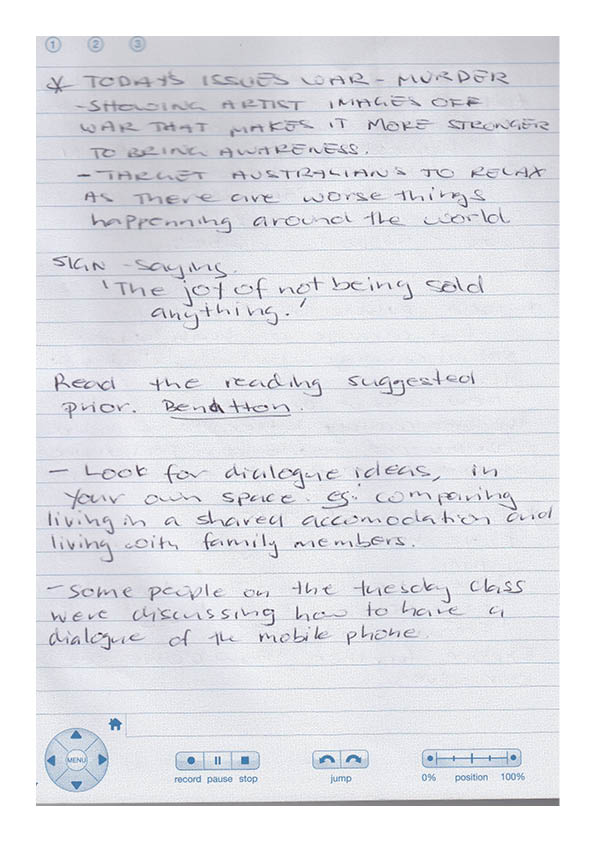 1 2 3
* TODAY'S ISSUES WAR - MURDER
- SHOWING ARTIST IMAGES OFF
WAR THAT MAKES IT MORE STRONGER
TO BRING AWARENESS.
- TARGET AUSTRALIAN'S TO RELAX
AS THERE are worse things
happenning around the world
SIGN - saying.
'The joy of not being sold
anything.'
Read the reading suggested
prior. Benatton.
- Look for dialogue ideas, in
your own space. eg: comparing
living in a shared accomodation and
living with family members.
- Some people on the tuesday class
were discussing how to have a
dialogue of the mobile phone.
MENU
record pause stop jump 0% position 100%